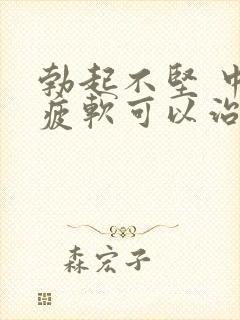 勃起不坚
疲軟可以治
森宏子